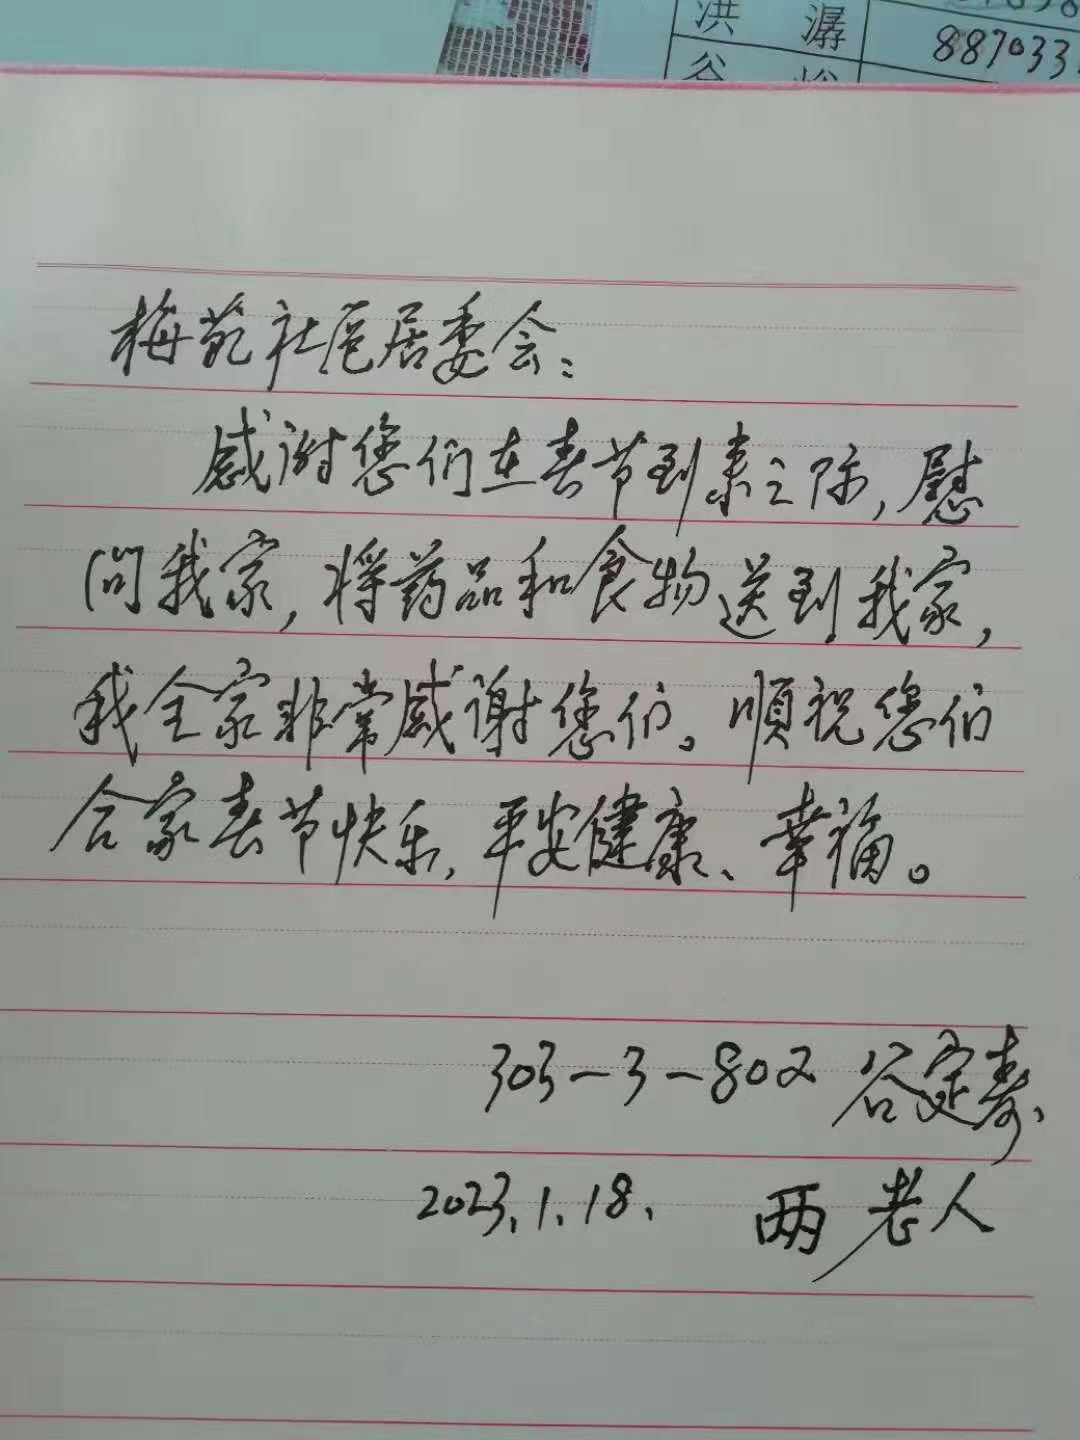 洪 潺
887033
谷
梅苑社区居委会：
感谢您们在春节到来之际，慰
问我家，将药品和食物送到我家，
我全家非常感谢您们。顺祝您们
合家春节快乐，平安健康、幸福。
303-3-802 谷定寿、
2023.1.18. 两老人